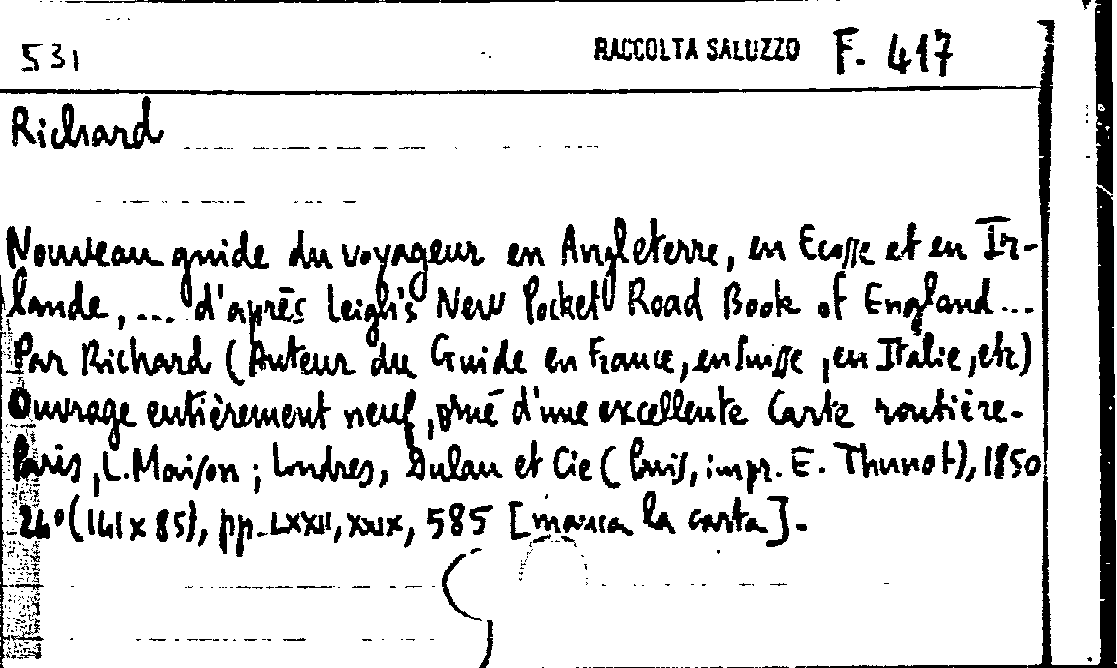 531 RACCOLTA SALUZZO F. 417
Richard
Nouveau guide du voyageur en Angleterre, en Ecosse et en Ir-
lande, ... d'après Leigh's New Pocket Road Book of England...
Par Richard (Auteur du Guide en France, en Suisse, en Italie, etc)
Ouvrage entièrement neuf, orné d'une excellente Carte routière.
Paris, L. Maison; Londres, Dulau et Cie (Paris, impr. E. Thunot), 1850
24° (141 x 85), pp. LXXII, XXIX, 585 [manca la carta].